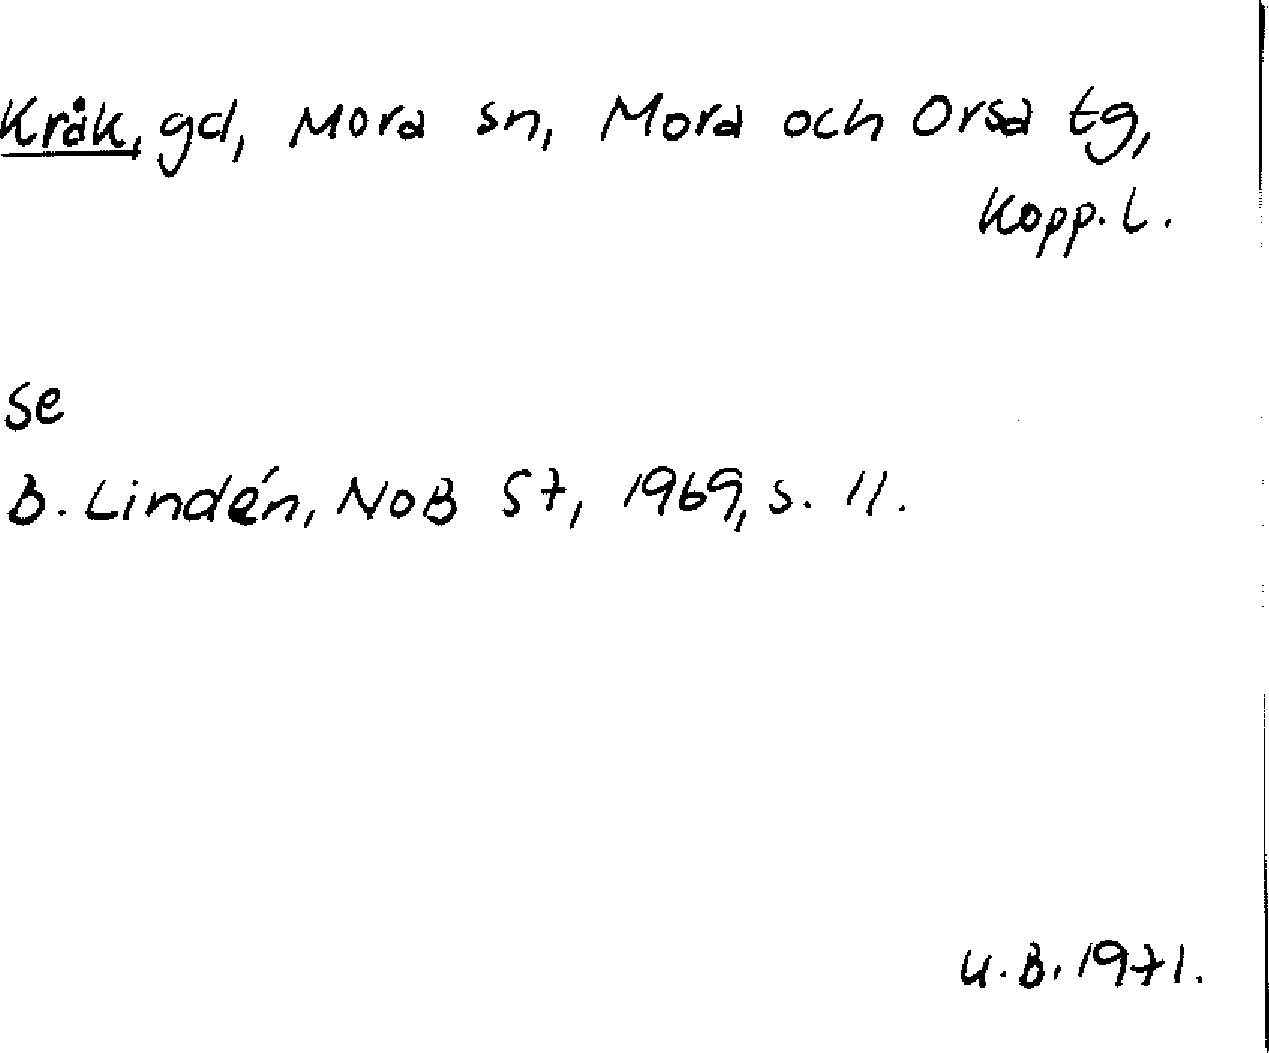 Kråk, gd, Mora sn, Mora och Orsa tg,
Kopp. l.
se
B. Lindén, NoB 57, 1969, s. 11.
U.B. 1971.